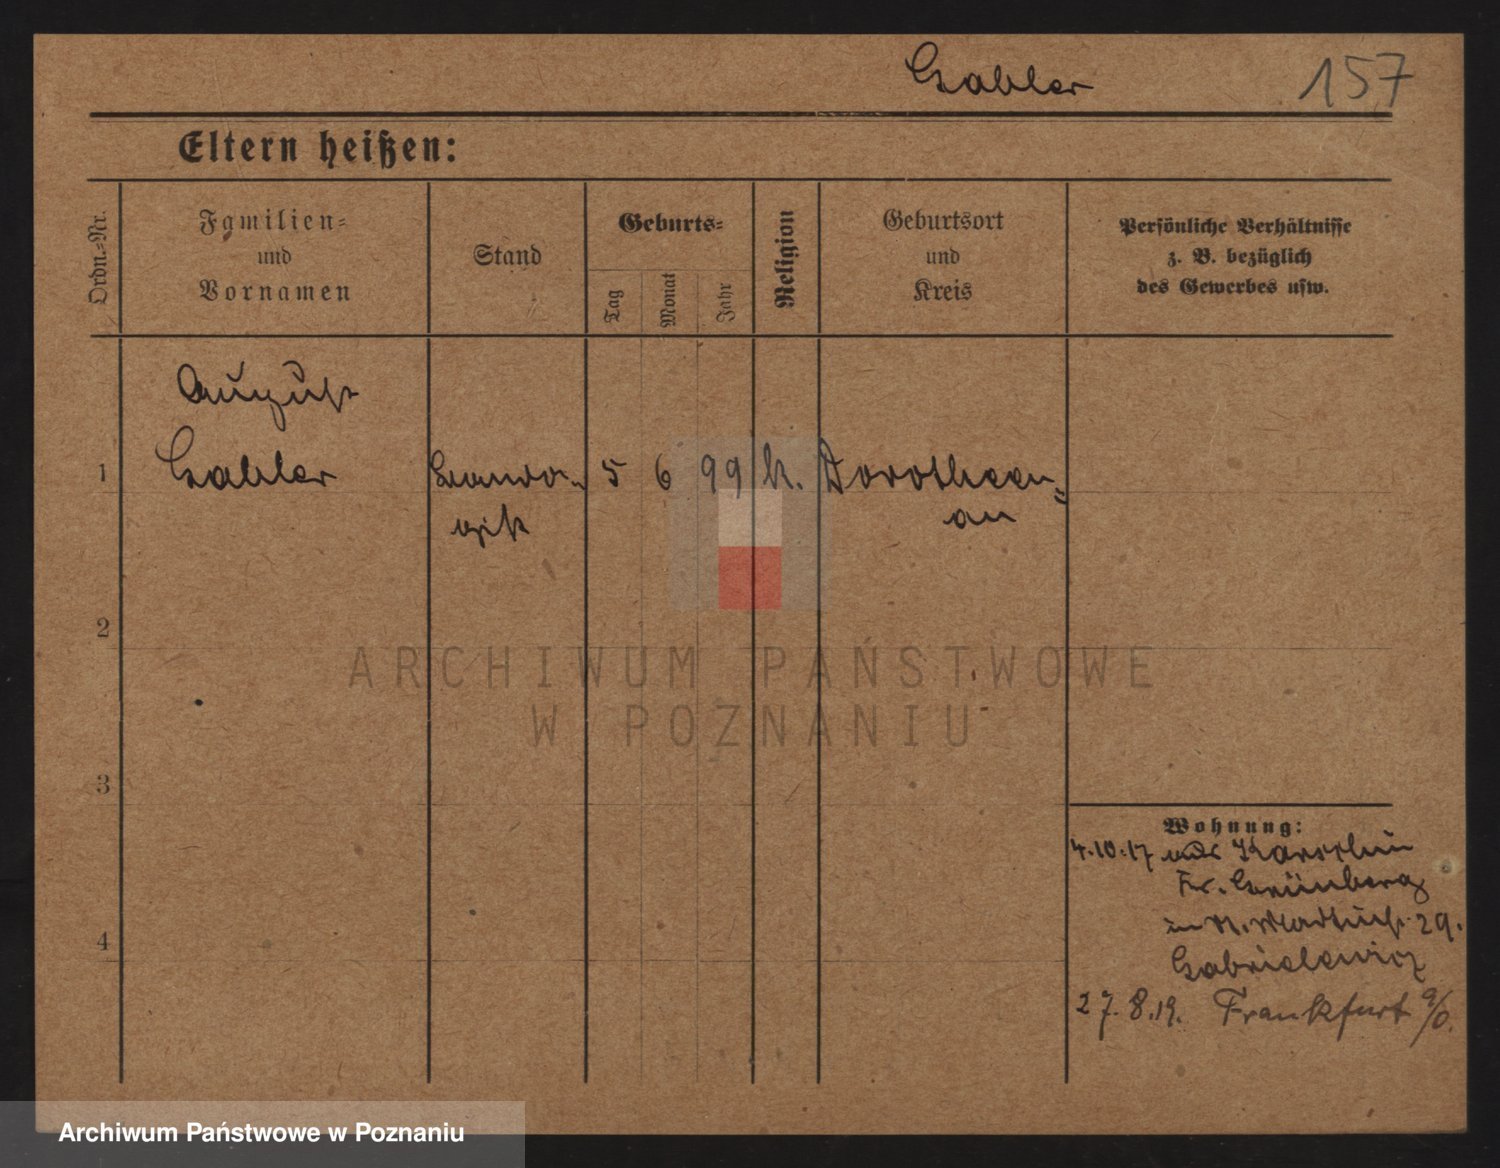 Gabler 157
Eltern heißen:
Ordn.-Nr.
Familien-
und
Vornamen
Stand
Geburts-
Tag
Monat
Jahr
Religion
Geburtsort
und
Kreis
Persönliche Verhältnisse
z. B. bezüglich
des Gewerbes usw.
August
1 Gabler 5 6 99 k. Dorotheen-
au
2
ARCHIWUM PAŃSTWOWE
W POZNANIU
3
Wohnung:
4.10.17 aus
Kr. Grünberg
29.
Gabrielewicz
4
27.8.19. Frankfurt a/O.
Archiwum Państwowe w Poznaniu